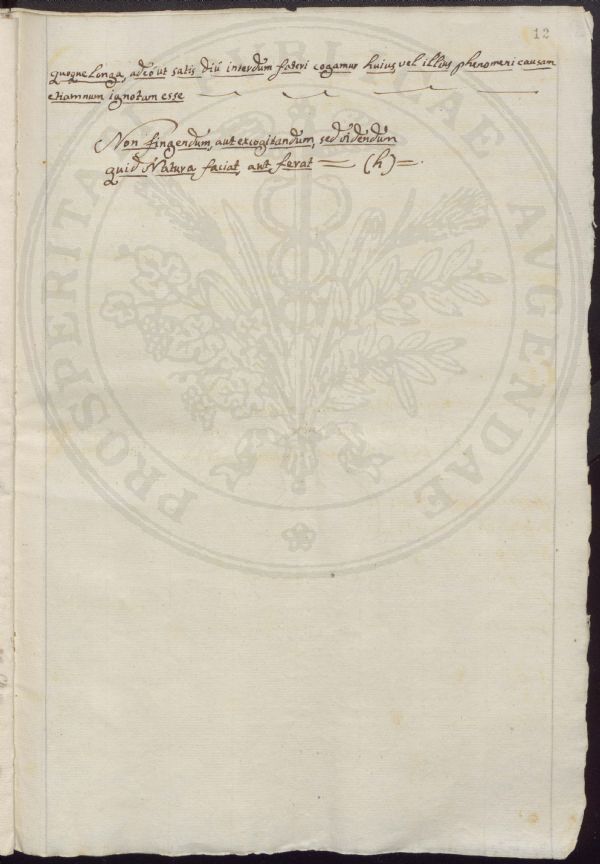 12
quoque longa, adeò ut satis diù interdum fateri cogamur huius, vel illius phenomeni causam
etiamnum ignotam esse
Non fingendum, aut excogitandum, sed videndùm
quid Natura faciat, aut ferat = (h) =.
PROSPERITATI PUBLICAE AVGENDAE